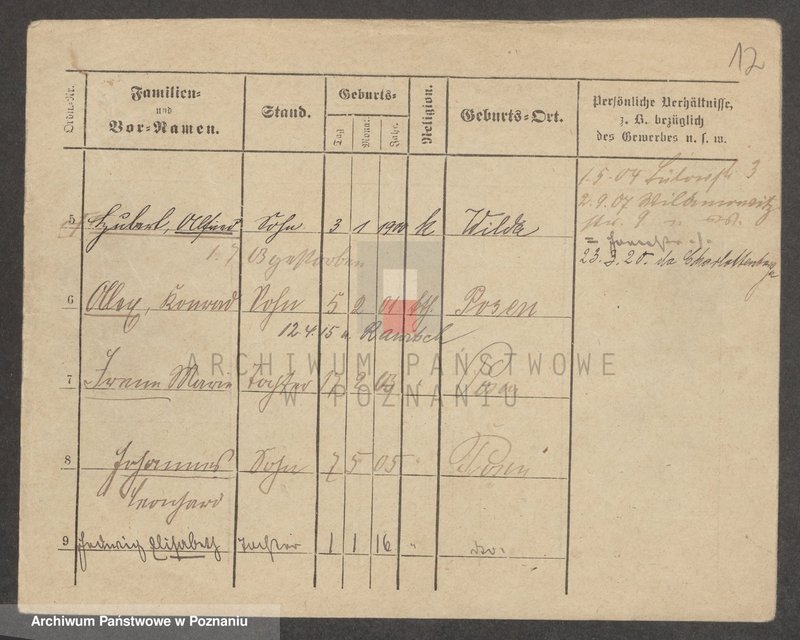 12
Ordn.-Nr.
Familien-
und
Vor-Namen.
Stand.
Geburts-
Tag
Monat
Jahr
Religion.
Geburts-Ort.
Persönliche Verhältnisse,
z. B. bezüglich
des Gewerbes u. s. w.
1.5.04 3
2.9.07
9
23.3.20. Charlottenburg
5 Hubert, Alfred Sohn 3 1 1900 k Wilda
gestorben
6 Alex, Konrad Sohn 5 2 01 kth. Posen
12.4.15 n. Rawitsch
7 Irene Marie Tochter 17 2 03 " Posen
8 Johannes Sohn 7 5 05 " Posen
Leonhard
9 Hedwig Elisabeth Tochter 1 1 16 " do.
ARCHIWUM PAŃSTWOWE
W POZNANIU
Archiwum Państwowe w Poznaniu